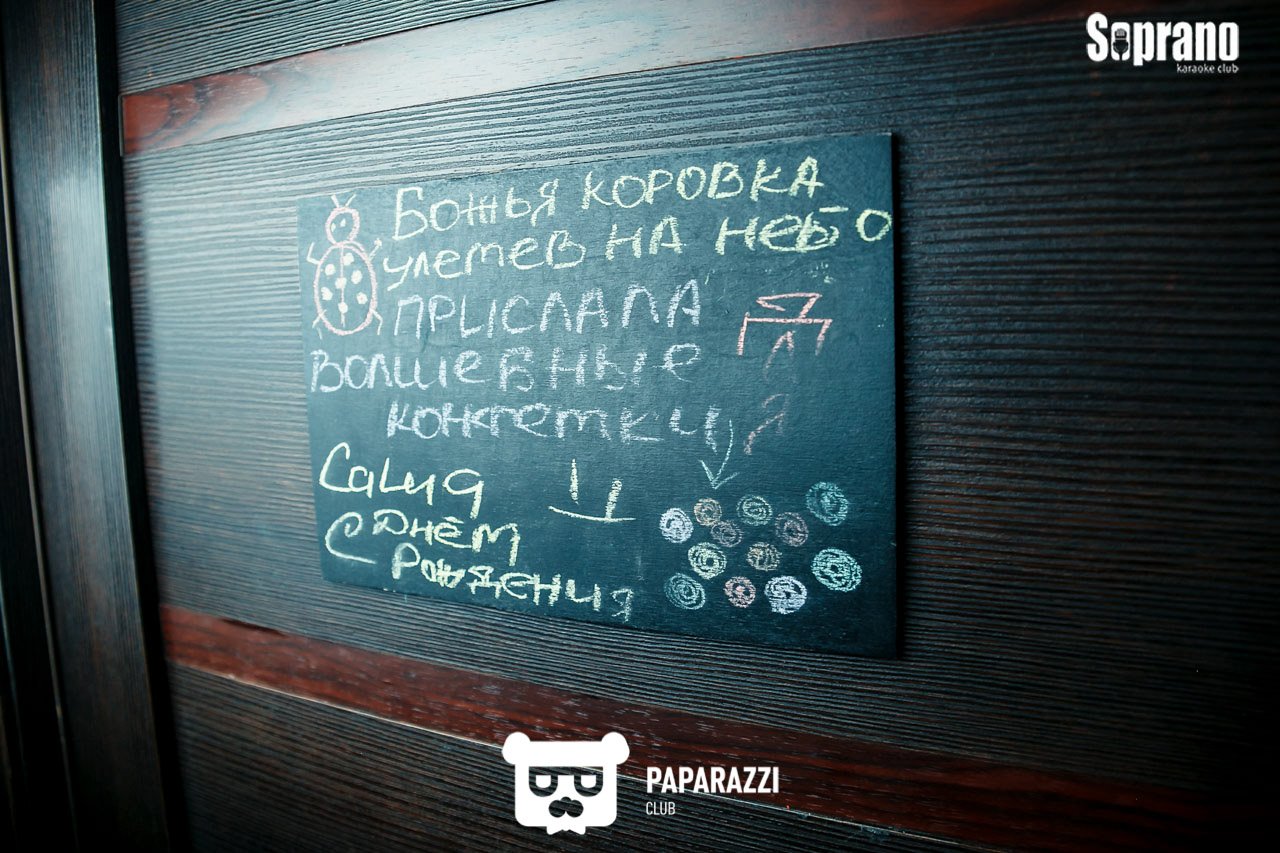 Soprano
karaoke club
Божья коровка
улетев на небо
прислала
волшебные
конфетки
С Днём
Рождения
PAPARAZZI
CLUB